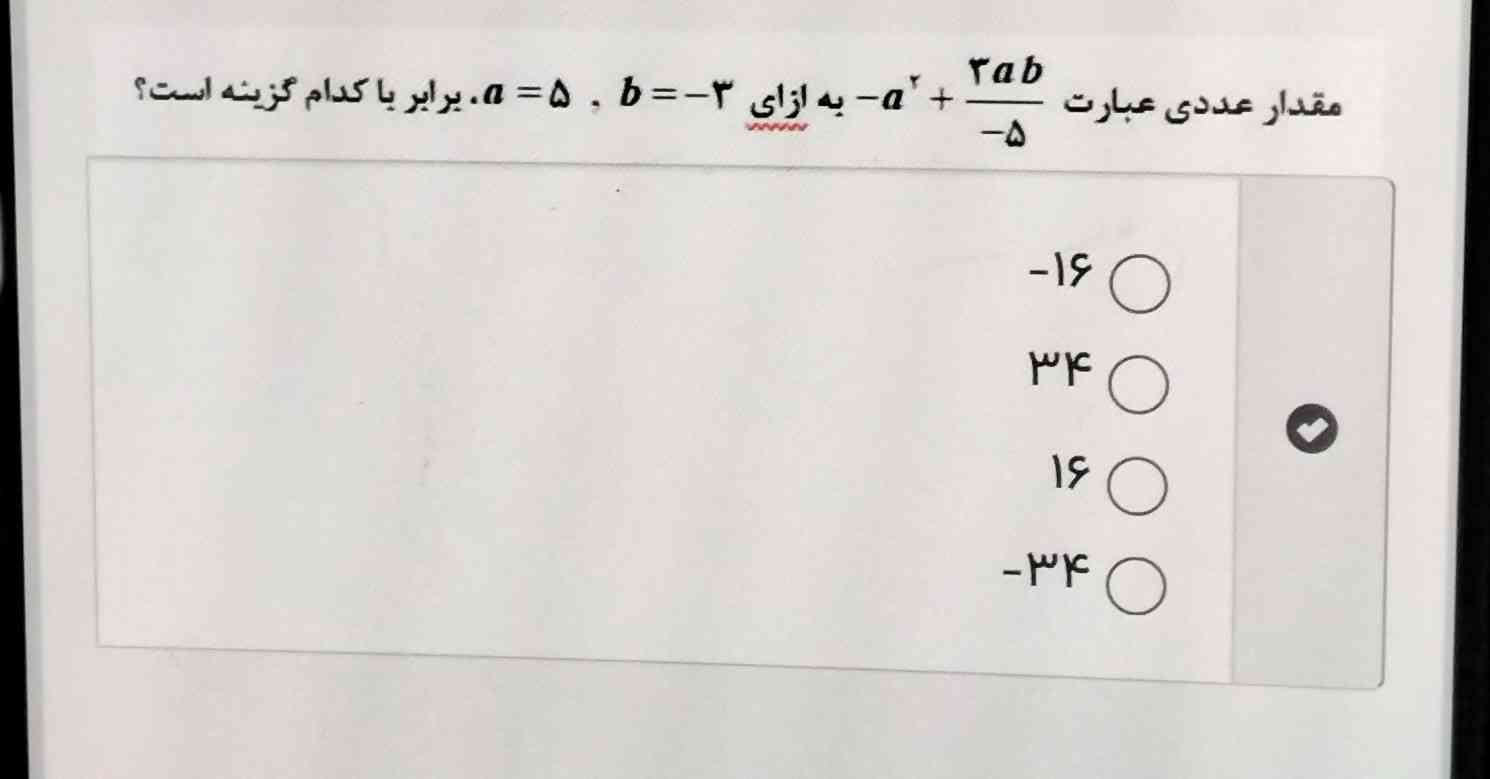 مقدار عددی عبارت −a² + ۳ab/−۵ به ازای b=−۳ , a=۵. برابر با کدام گزینه است؟
-۱۶
۳۴
۱۶
-۳۴